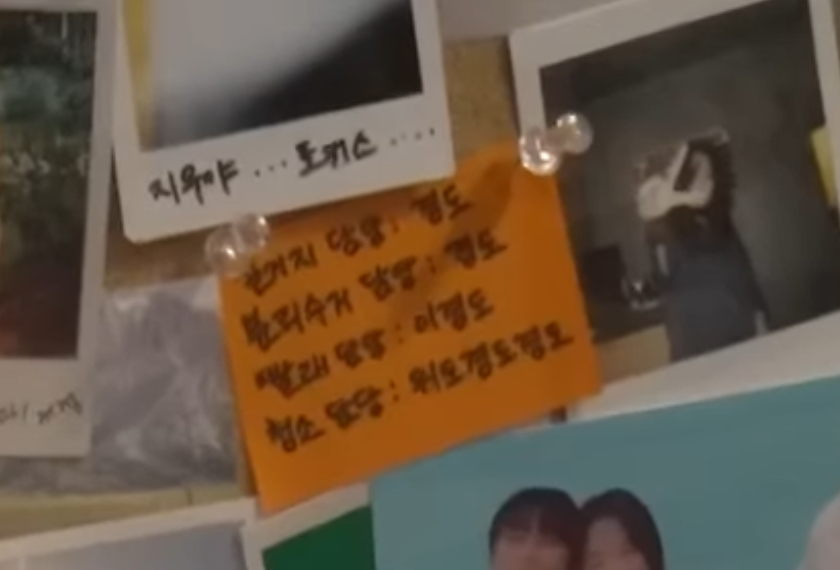 지우야 ... 토끼스 ....
설거지 담당 : 경도
분리수거 담당 : 경도
빨래 담당 : 이경도
청소 담당 : 위도경도경도